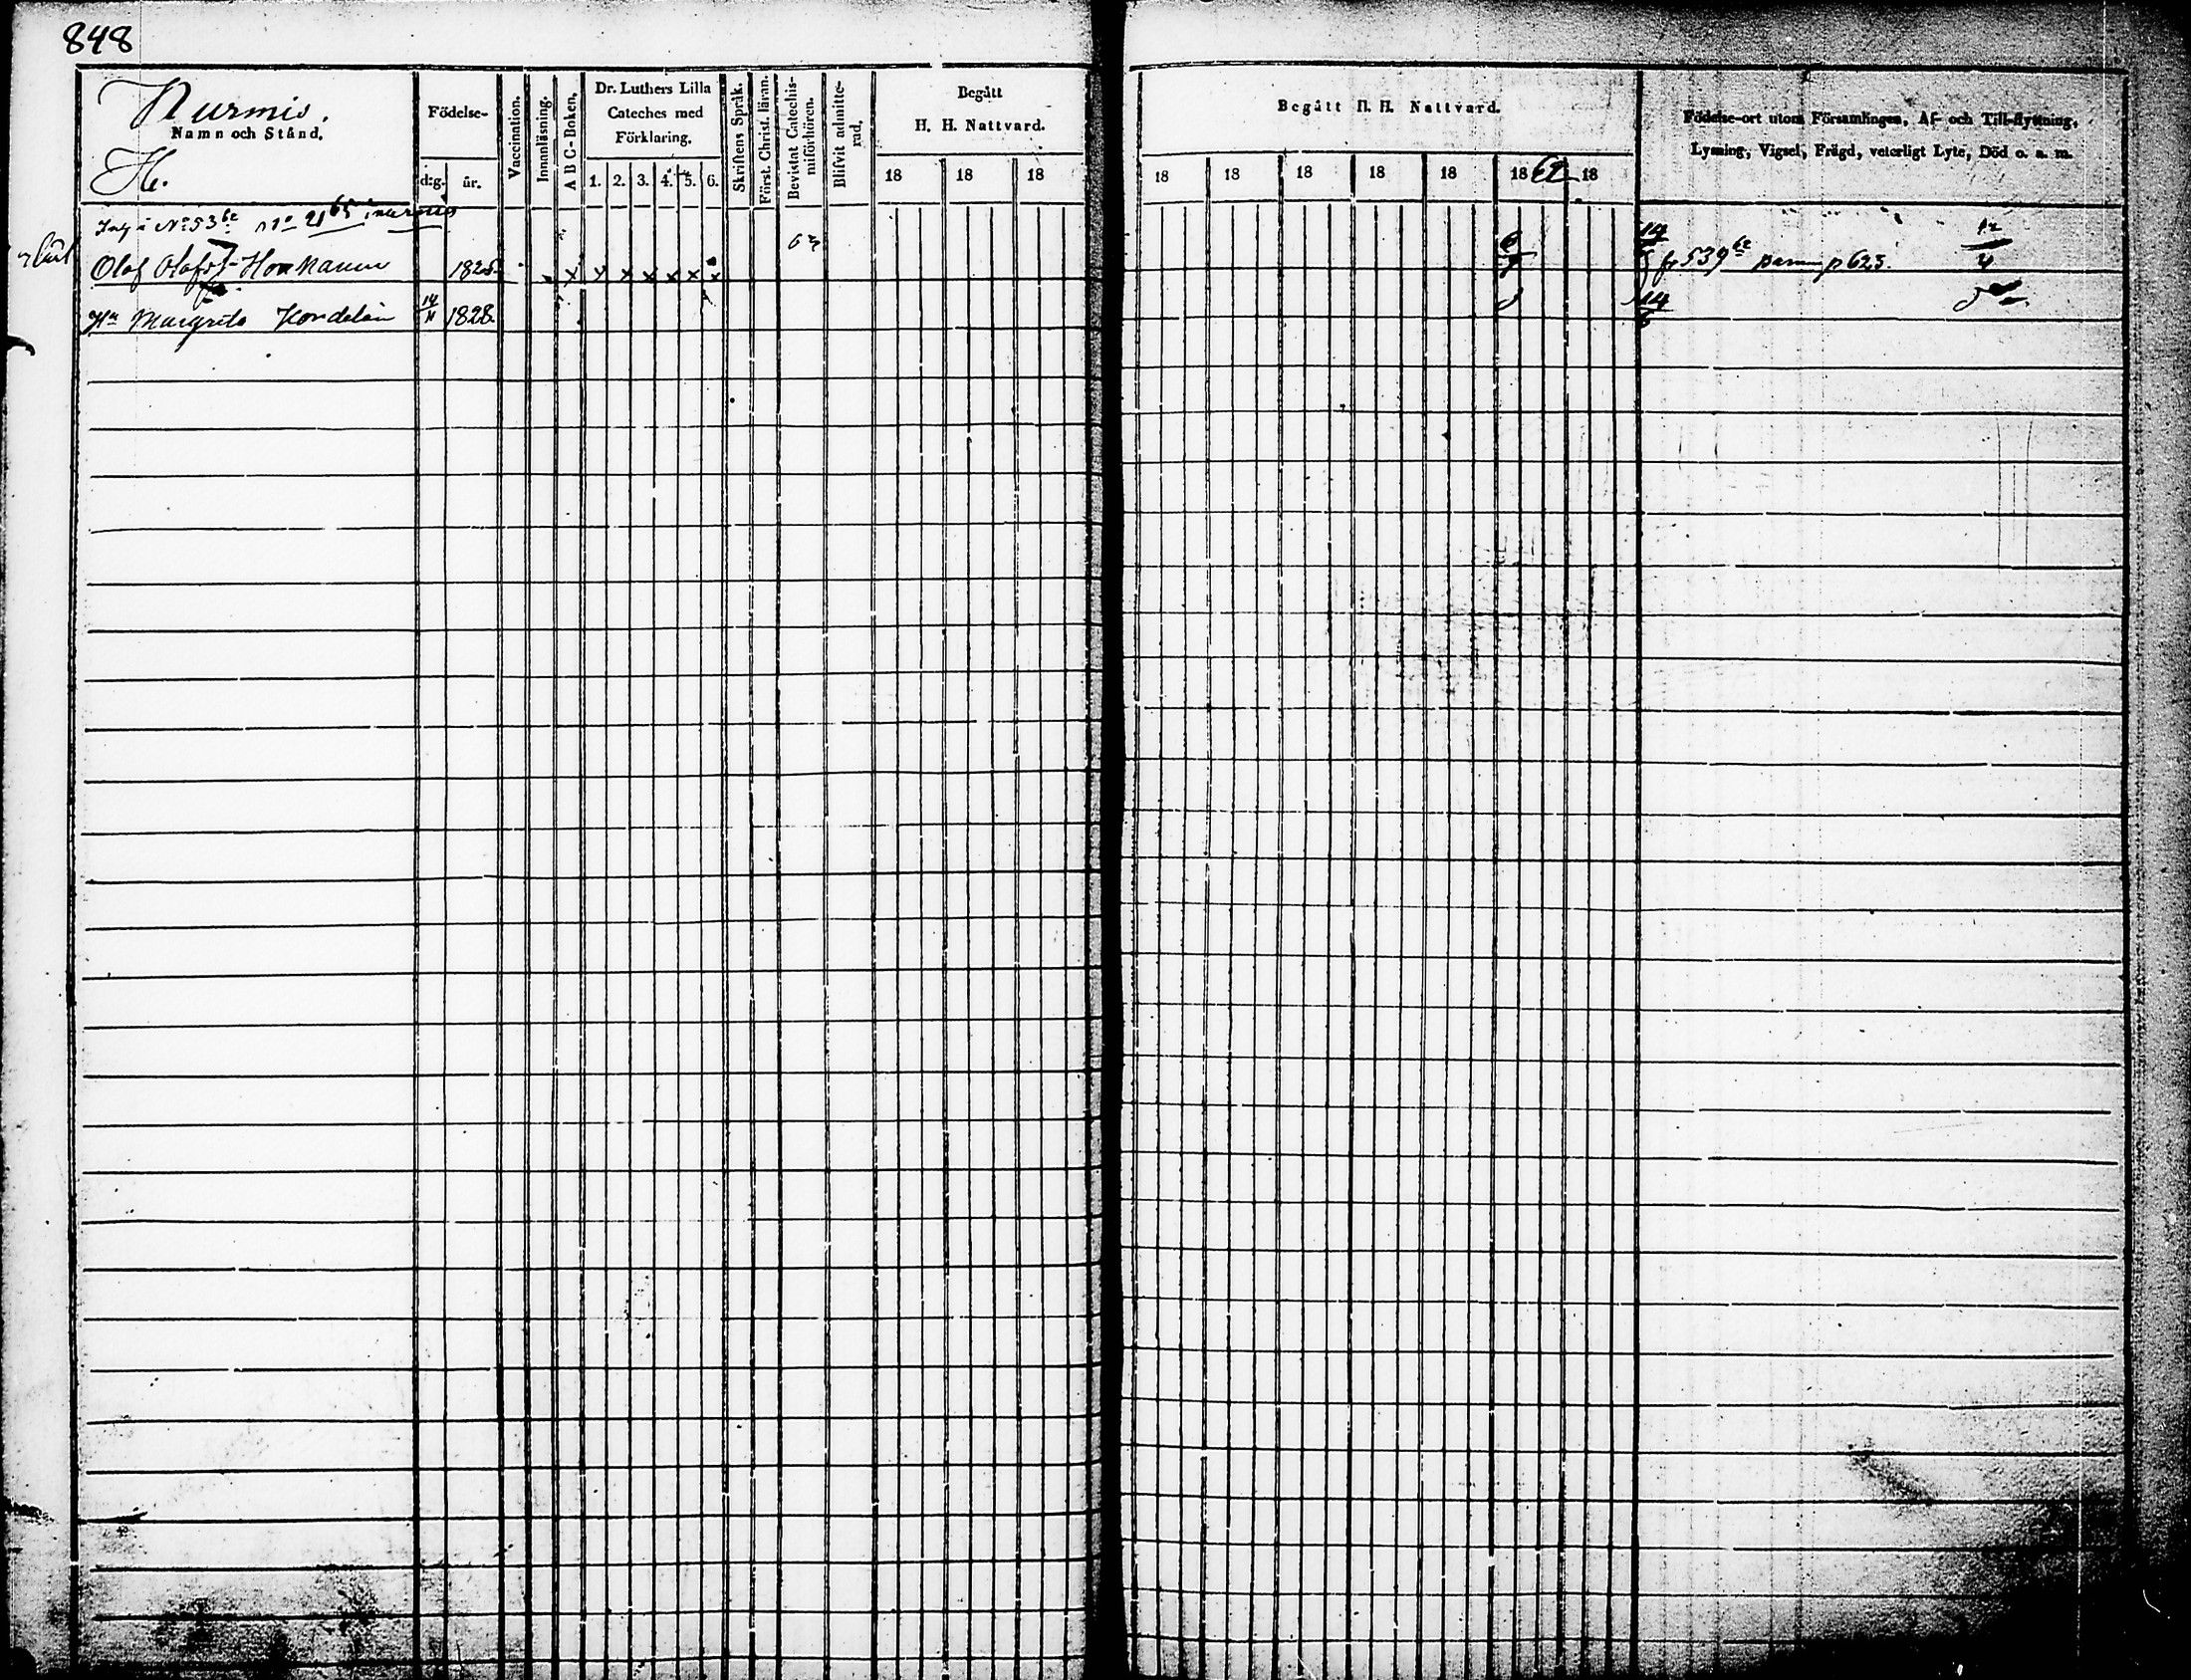 848
Nurmis.
Namn och Stånd.
H.
Födelse-
dag. år.
Vaccination.
Innanläsning.
A B C-Boken.
Dr. Luthers Lilla
Cateches med
Förklaring.
1. 2. 3. 4. 5. 6.
Skriftens Språk.
Först. Christ. läran.
Bevistat Catechis-
miförhören.
Blifvit admitte-
rad.
Begått
H. H. Nattvard.
18 18 18
Begått H. H. Nattvard.
18 18 18 18 18 1862 18
Födelse-ort utom Församlingen, Af- och Till-flyttning,
Lysning, Vigsel, Frägd, veterligt Lyte, Död o. a. m.
i No 53 62 21 65 Nurmis
Olof Olofss. Honkanen 1825. x x x x x x x 63 fr 539 62 p 623. 12/4
Hu Margreta 14/11 1828. 14/6